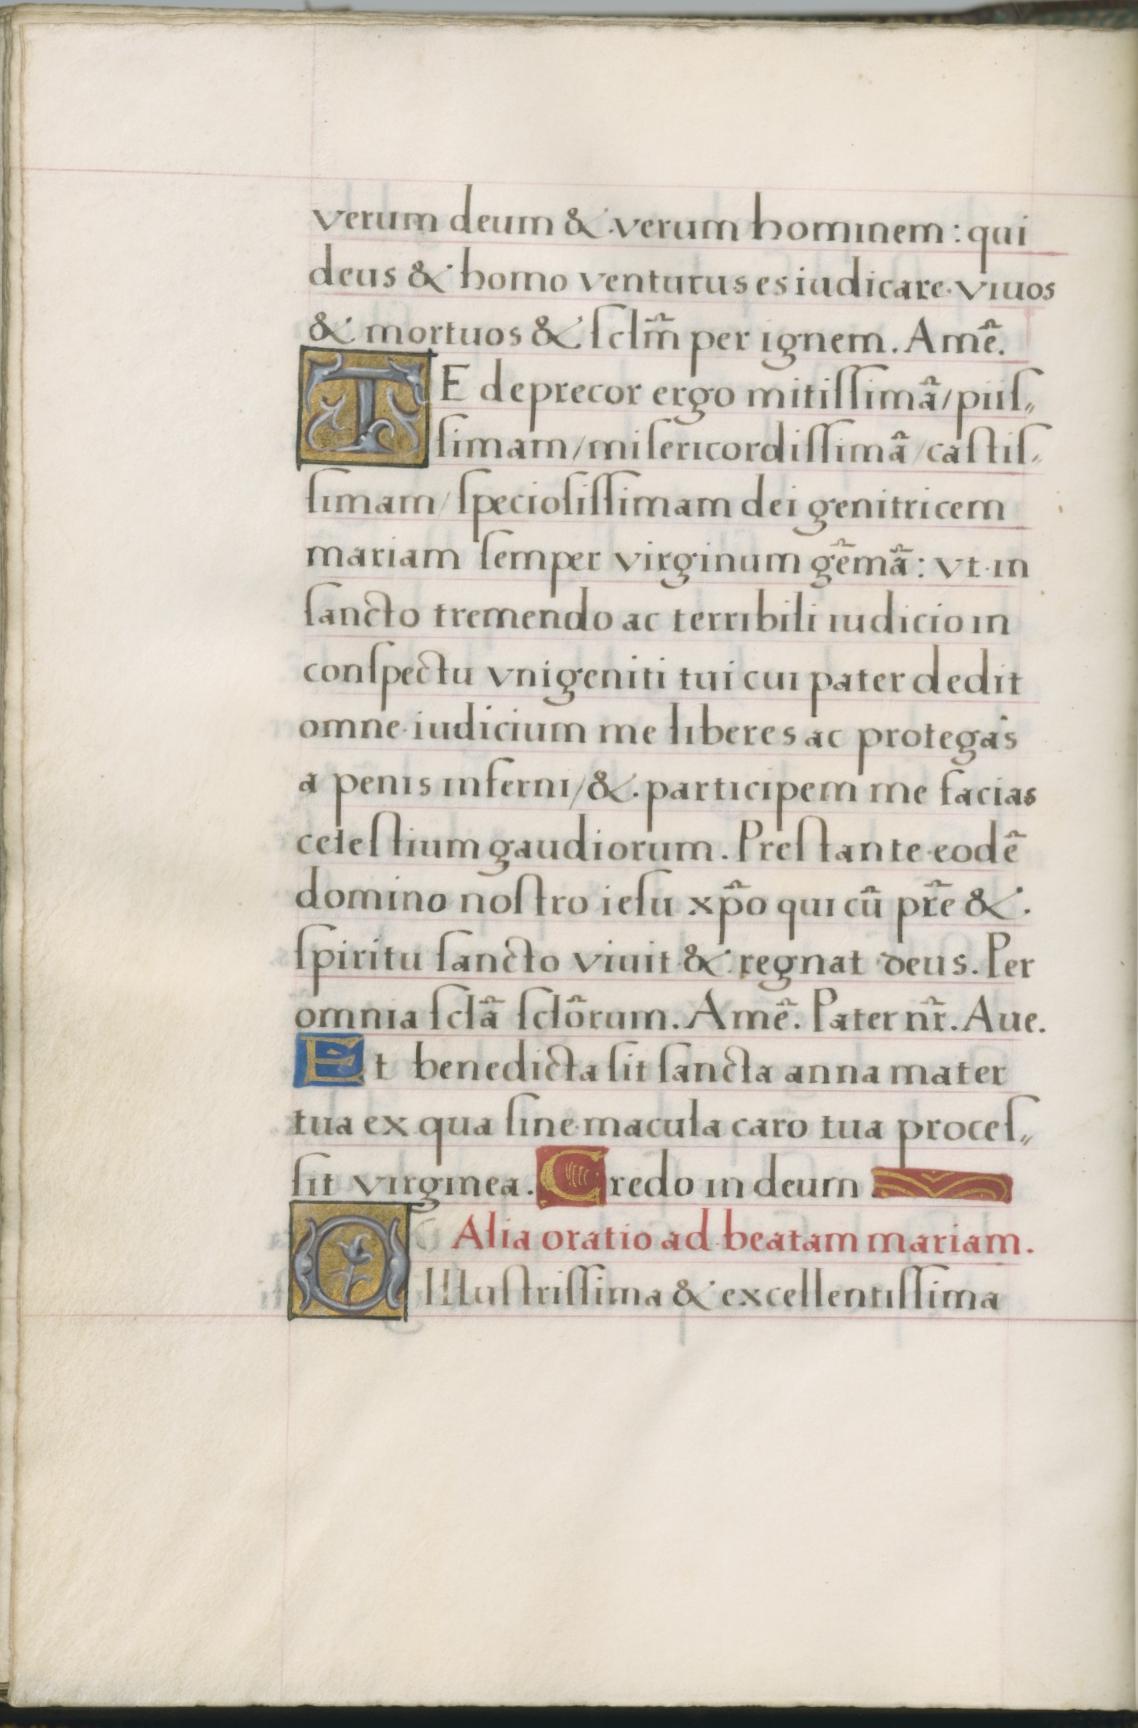 verum deum & verum hominem: qui
deus & homo venturus es iudicare viuos
& mortuos & ſcłm̃ per ignem. Amẽ.
TE deprecor ergo mitiſſimã/ piiſ„
ſimam/ miſericordiſſimã/ caſtiſ„
ſimam/ ſpecioſiſſimam dei genitricem
mariam ſemper virginum gẽmã: vt in
ſancto tremendo ac terribili iudicio in
conſpectu vnigeniti tui cui pater dedit
omne iudicium me liberes ac protegas
a penis inferni/ &. participem me facias
celeſtium gaudiorum. Preſtante eodẽ
domino noſtro ieſu xp̃o qui cũ pr̃e &.
ſpiritu ſancto viuit & regnat deus. Per
omnia ſclã ſclõrum. Amẽ. Pater nr̃. Aue.
Et benedicta ſit ſancta anna mater
tua ex qua ſine macula caro tua proceſ„
ſit virginea. Credo in deum
Alia oratio ad beatam mariam.
O Illuſtriſſima & excellentiſſima